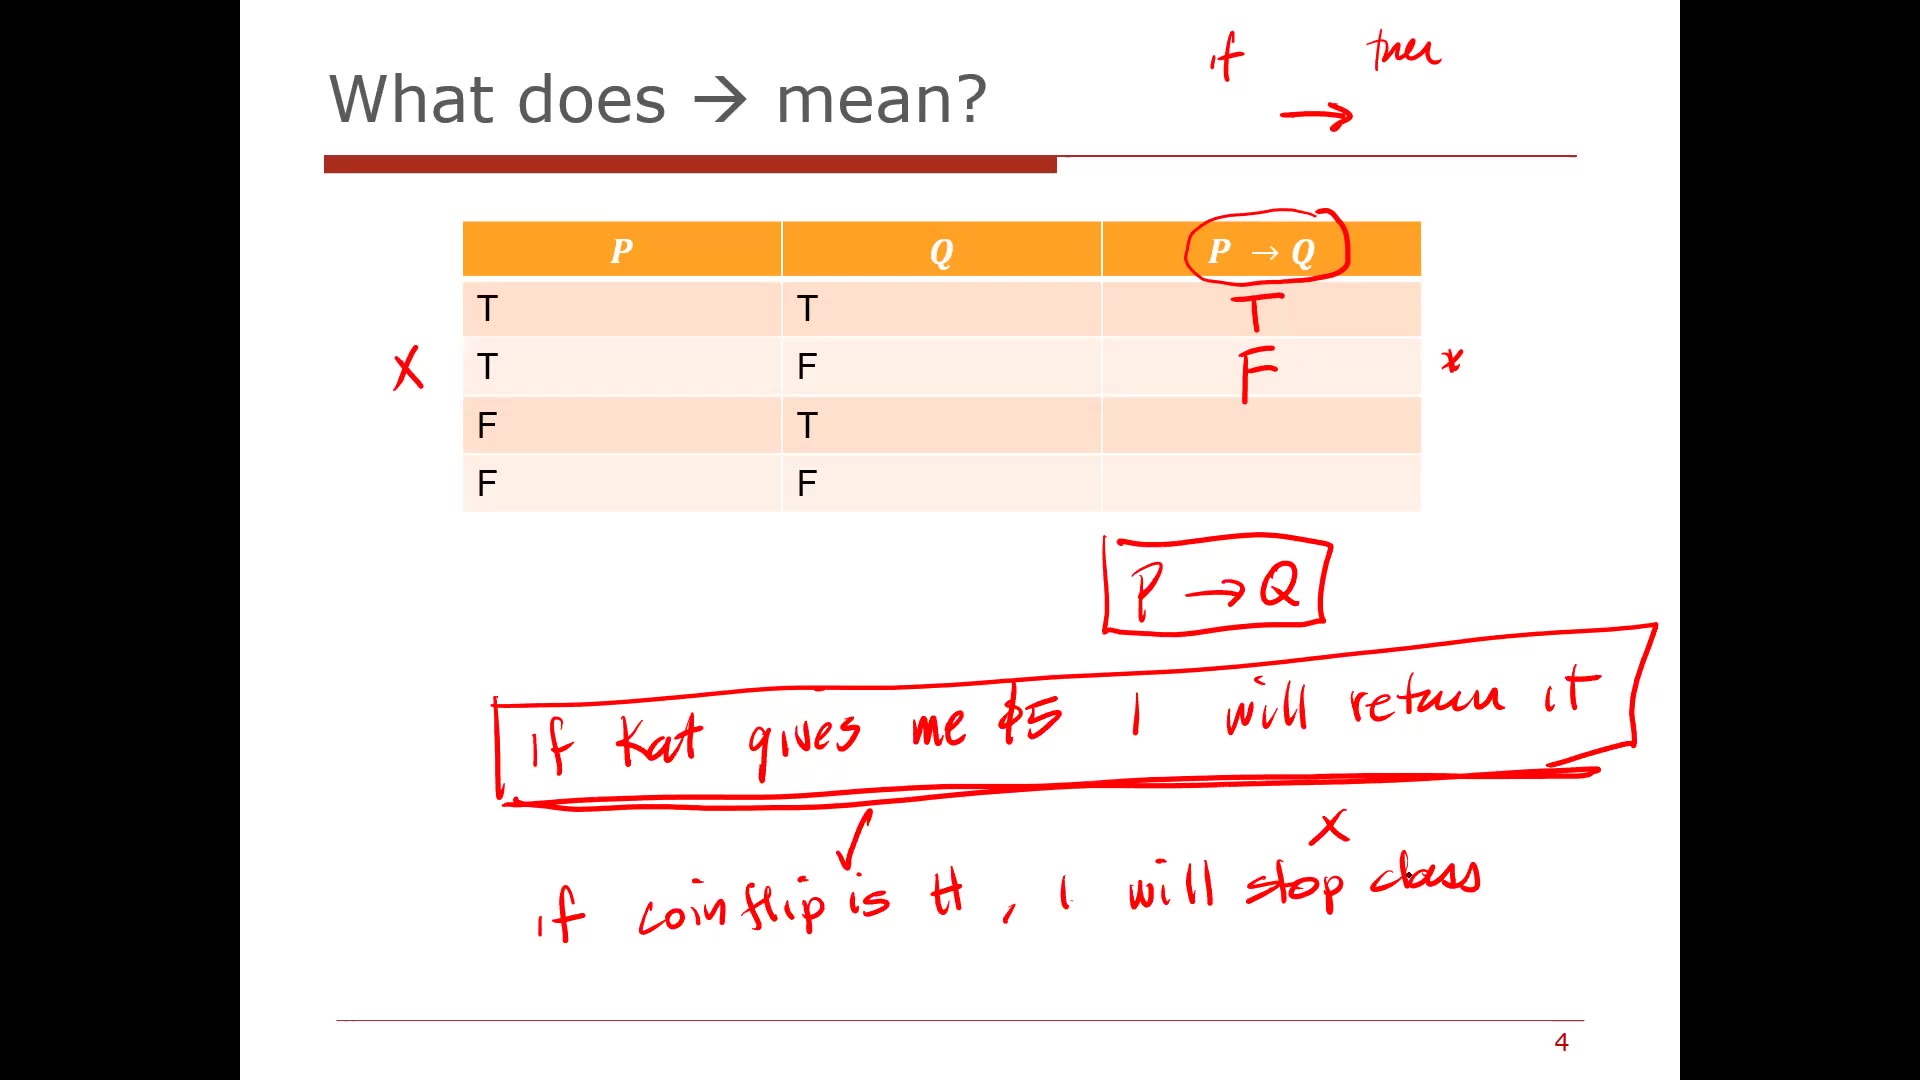 if then
What does → mean?
→
P Q P → Q
T T T
X T F F *
F T
F F
P → Q
if Kat gives me $5 I will return it
✓ X
if coinflip is H, I will stop class
4